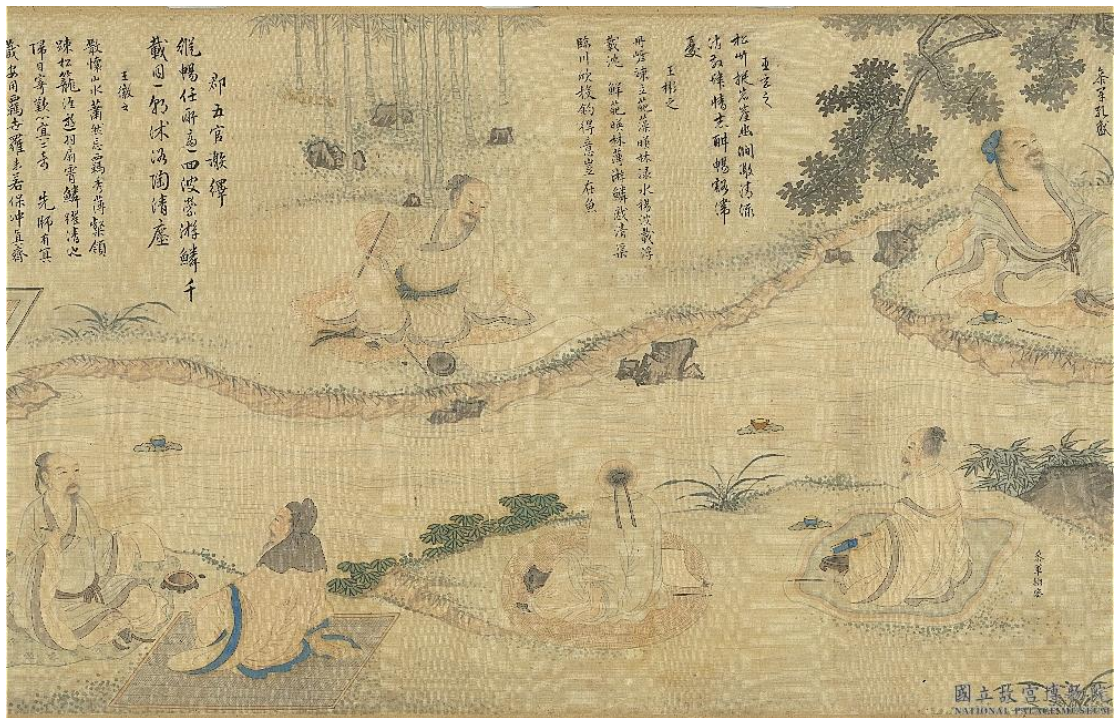 王玄之
松竹挺岩崖幽澗激清流
消散肆情志酣暢豁滯
憂
王彬之
丹崖竦立葩藻暎林淥水揚波載浮
載沈 鮮葩暎林薄游鱗戲清渠
臨川欣投釣得意豈在魚
郡五官謝繹
縱暢任所適回波縈游鱗千
載同一朝沐浴陶清塵
王徽之
散懷山水蕭然忘羈秀薄粲穎
疎松籠涯遊羽扇霄鱗躍清池
歸目寄歡心冥二奇 先師有冥
藏安用羈世羅未若保沖真齊
參軍
參軍
國立故宮博物院
NATIONAL PALACE MUSEUM